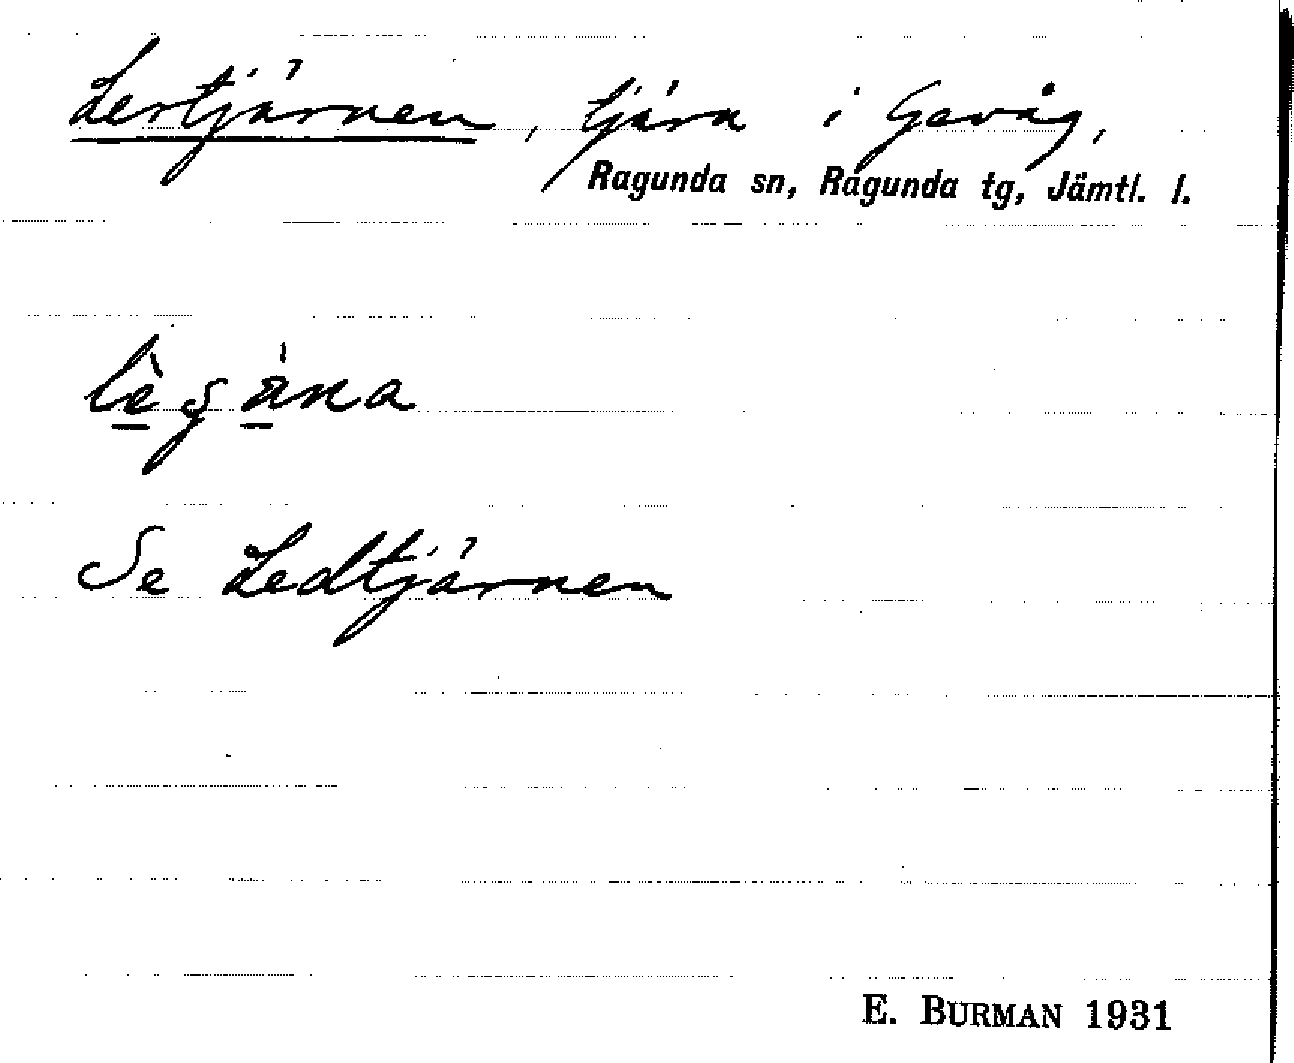 Lertjärnen, tjärn i Gevåg,
Ragunda sn, Ragunda tg, Jämtl. l.
Se Ledtjärnen
E. BURMAN 1931